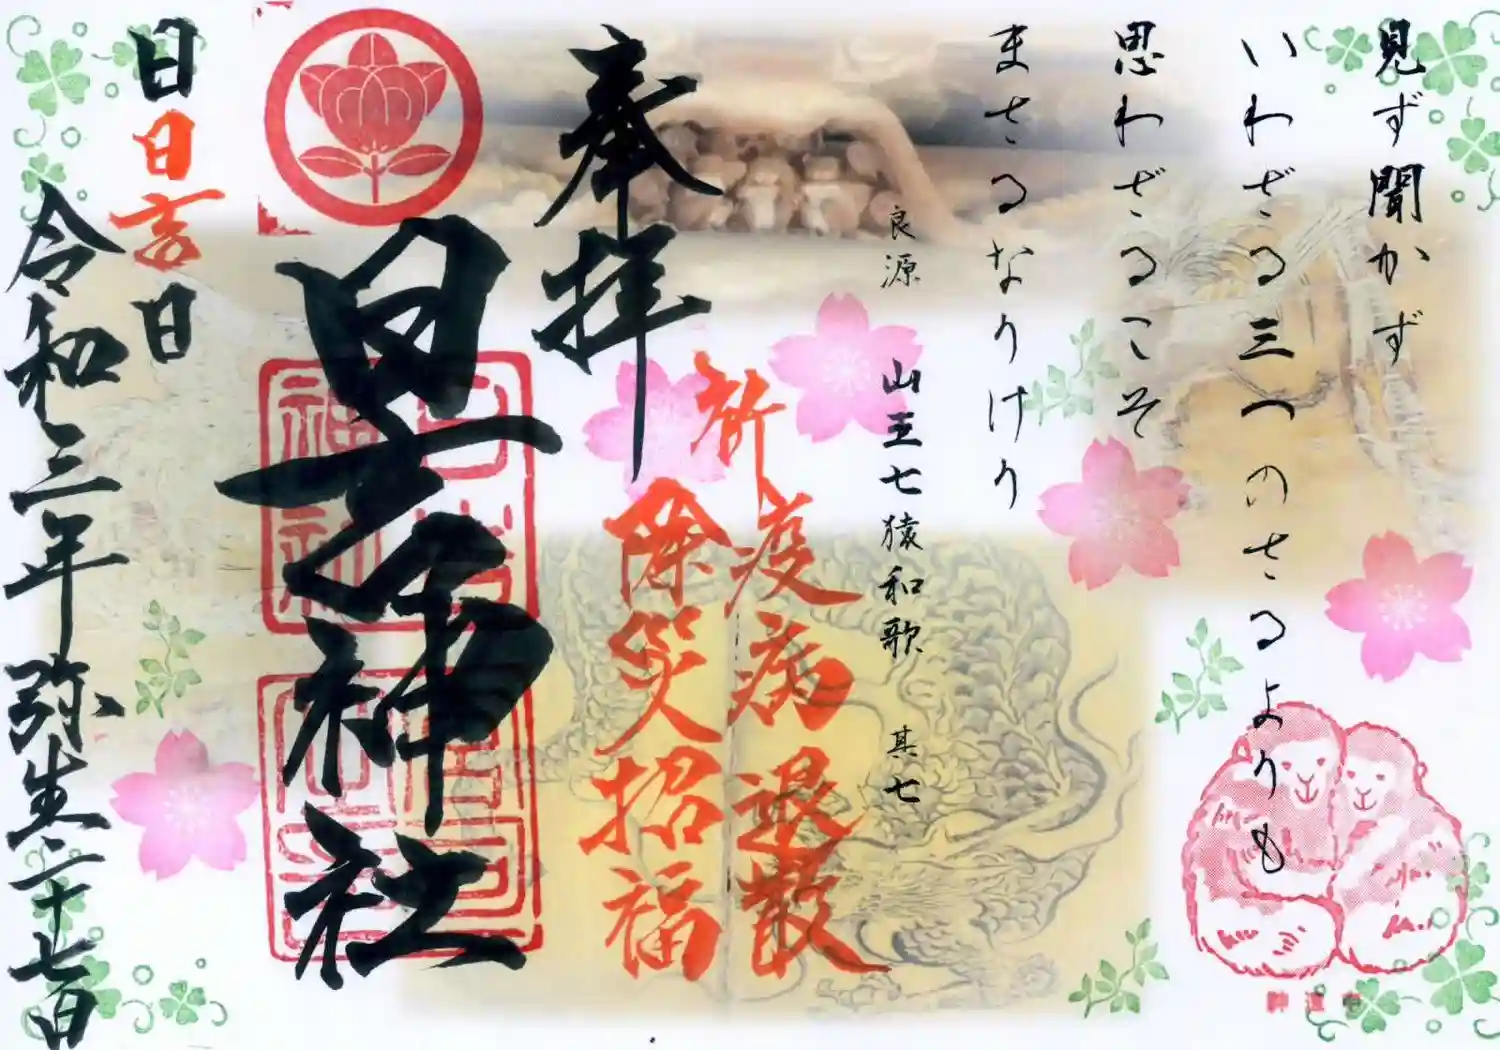 見ず聞かず
いわざる三つのさるよりも
思わざるこそ
まさるなりけり
良源　山王七猿和歌　其七
祈
疫病退散
除災招福
奉拝
日吉神社
日
日吉
日
令和三年弥生二十七日